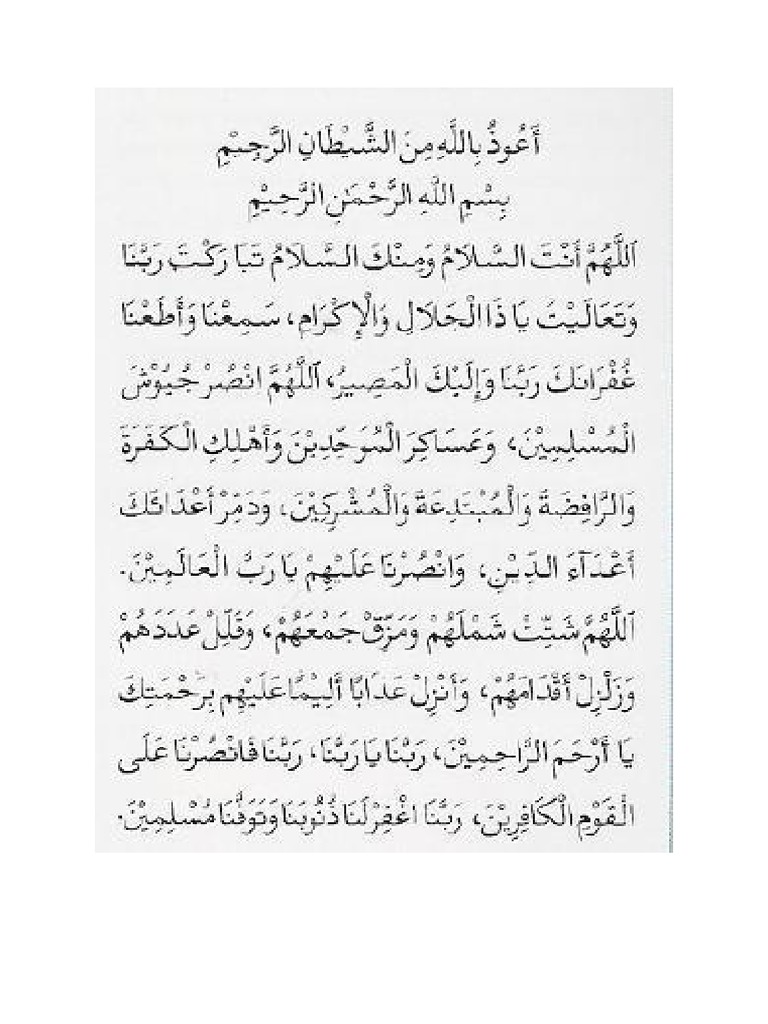 أَعُوذُ بِاللَّهِ مِنَ الشَّيْطَانِ الرَّجِيْمِ
بِسْمِ اللهِ الرَّحْمٰنِ الرَّحِيْمِ
اَللَّهُمَّ أَنْتَ السَّلَامُ وَمِنْكَ السَّلَامُ تَبَارَكْتَ رَبَّنَا
وَتَعَالَيْتَ يَا ذَا الْجَلَالِ وَالْإِكْرَامِ، سَمِعْنَا وَأَطَعْنَا
غُفْرَانَكَ رَبَّنَا وَإِلَيْكَ الْمَصِيرُ، اَللَّهُمَّ انْصُرْ جُيُوْشَ
الْمُسْلِمِيْنَ، وَعَسَاكِرَ الْمُوَحِّدِيْنَ وَأَهْلِكِ الْكَفَرَةَ
وَالرَّافِضَةَ وَالْمُبْتَدِعَةَ وَالْمُشْرِكِيْنَ، وَدَمِّرْ أَعْدَائَكَ
أَعْدَآءَ الدِّيْنِ، وَانْصُرْنَا عَلَيْهِمْ يَا رَبَّ الْعَالَمِيْنَ.
اَللَّهُمَّ شَتِّتْ شَمْلَهُمْ وَمَزِّقْ جَمْعَهُمْ، وَقَلِّلْ عَدَدَهُمْ
وَزَلْزِلْ أَقْدَامَهُمْ، وَأَنْزِلْ عَذَابًا أَلِيْمًا عَلَيْهِم بِرَحْمَتِكَ
يَا أَرْحَمَ الرَّاحِمِيْنَ، رَبَّنَا يَا رَبَّنَا، رَبَّنَا فَانْصُرْنَا عَلَى
الْقَوْمِ الْكَافِرِيْنَ، رَبَّنَا اغْفِرْ لَنَا ذُنُوْبَنَا وَتَوَفَّنَا مُسْلِمِيْنَ.